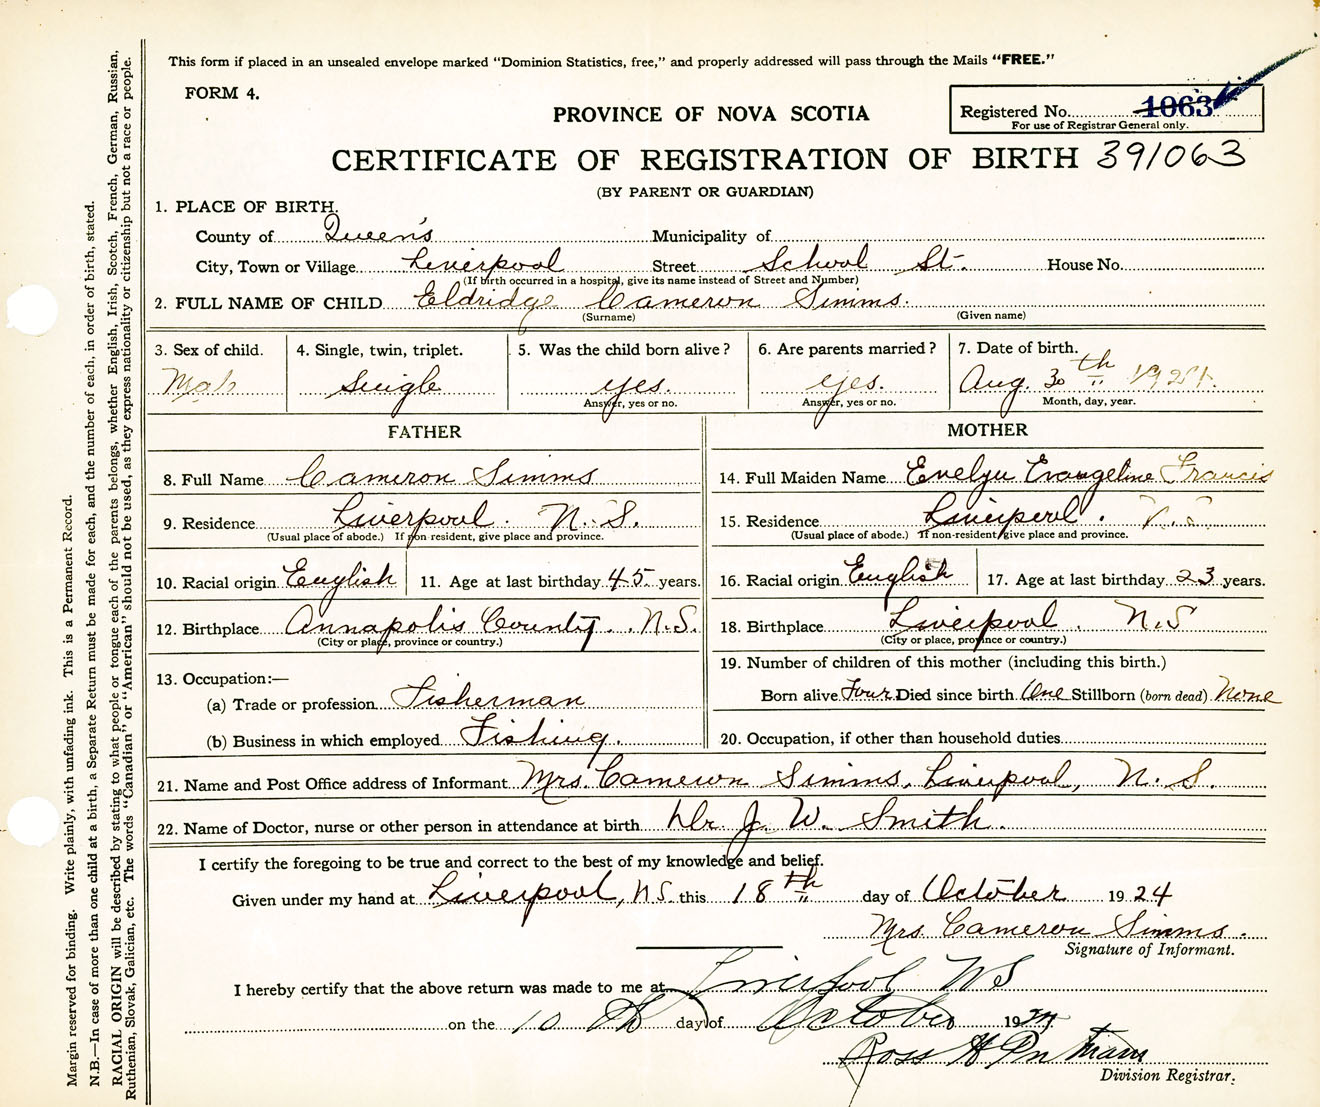 This form if placed in an unsealed envelope marked "Dominion Statistics, free," and properly addressed will pass through the Mails "FREE."
FORM 4.
PROVINCE OF NOVA SCOTIA
Registered No. 1063
For use of Registrar General only.
CERTIFICATE OF REGISTRATION OF BIRTH 391063
(BY PARENT OR GUARDIAN)
1. PLACE OF BIRTH.
County of Queen's Municipality of
City, Town or Village Liverpool Street School St. House No.
(If birth occurred in a hospital, give its name instead of Street and Number)
2. FULL NAME OF CHILD Eldridge Cameron Simms.
(Surname) (Given name)
3. Sex of child. 4. Single, twin, triplet. 5. Was the child born alive? 6. Are parents married? 7. Date of birth.
Male Single yes. yes. Aug. 30th
Answer, yes or no. Answer, yes or no. Month, day, year.
FATHER MOTHER
8. Full Name Cameron Simms 14. Full Maiden Name Evelyn Evangeline Francis
9. Residence Liverpool. N.S. 15. Residence Liverpool. N.S.
(Usual place of abode.) If non-resident, give place and province. (Usual place of abode.) If non-resident, give place and province.
10. Racial origin English 11. Age at last birthday 45 years. 16. Racial origin English 17. Age at last birthday 23 years.
12. Birthplace Annapolis County. N.S. 18. Birthplace Liverpool. N.S
(City or place, province or country.) (City or place, province or country.)
13. Occupation:— 19. Number of children of this mother (including this birth.)
(a) Trade or profession Fisherman Born alive Four Died since birth One Stillborn (born dead) None
(b) Business in which employed Fishing. 20. Occupation, if other than household duties
21. Name and Post Office address of Informant Mrs. Cameron Simms, Liverpool, N. S.
22. Name of Doctor, nurse or other person in attendance at birth Dr. J. W. Smith.
I certify the foregoing to be true and correct to the best of my knowledge and belief.
Given under my hand at Liverpool, N.S. this 18th day of October 1924
Mrs. Cameron Simms.
Signature of Informant.
I hereby certify that the above return was made to me at Liverpool NS
on the 10 th day of October 19
Ross H
Division Registrar.
Margin reserved for binding. Write plainly, with unfading ink. This is a Permanent Record.
N.B.—In case of more than one child at a birth, a Separate Return must be made for each, and the number of each, in order of birth, stated.
RACIAL ORIGIN will be described by stating to what people or tongue each of the parents belongs, whether English, Irish, Scotch, French, German, Russian,
Ruthenian, Slovak, Galician, etc. The words "Canadian" or "American" should not be used, as they express nationality or citizenship but not a race or people.